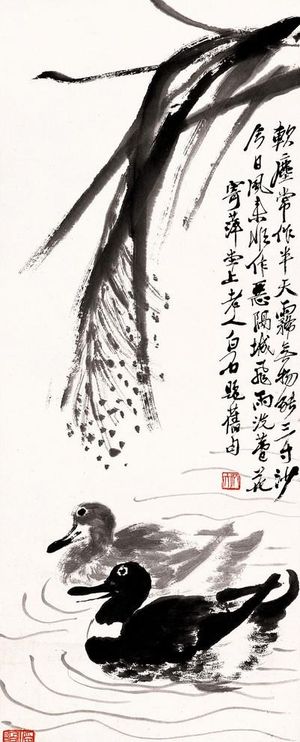 軟塵常作半天霧無物能三寸沙
今日風来作惡隔城飛雨洗蘆花
寄萍堂上老人白石題舊句